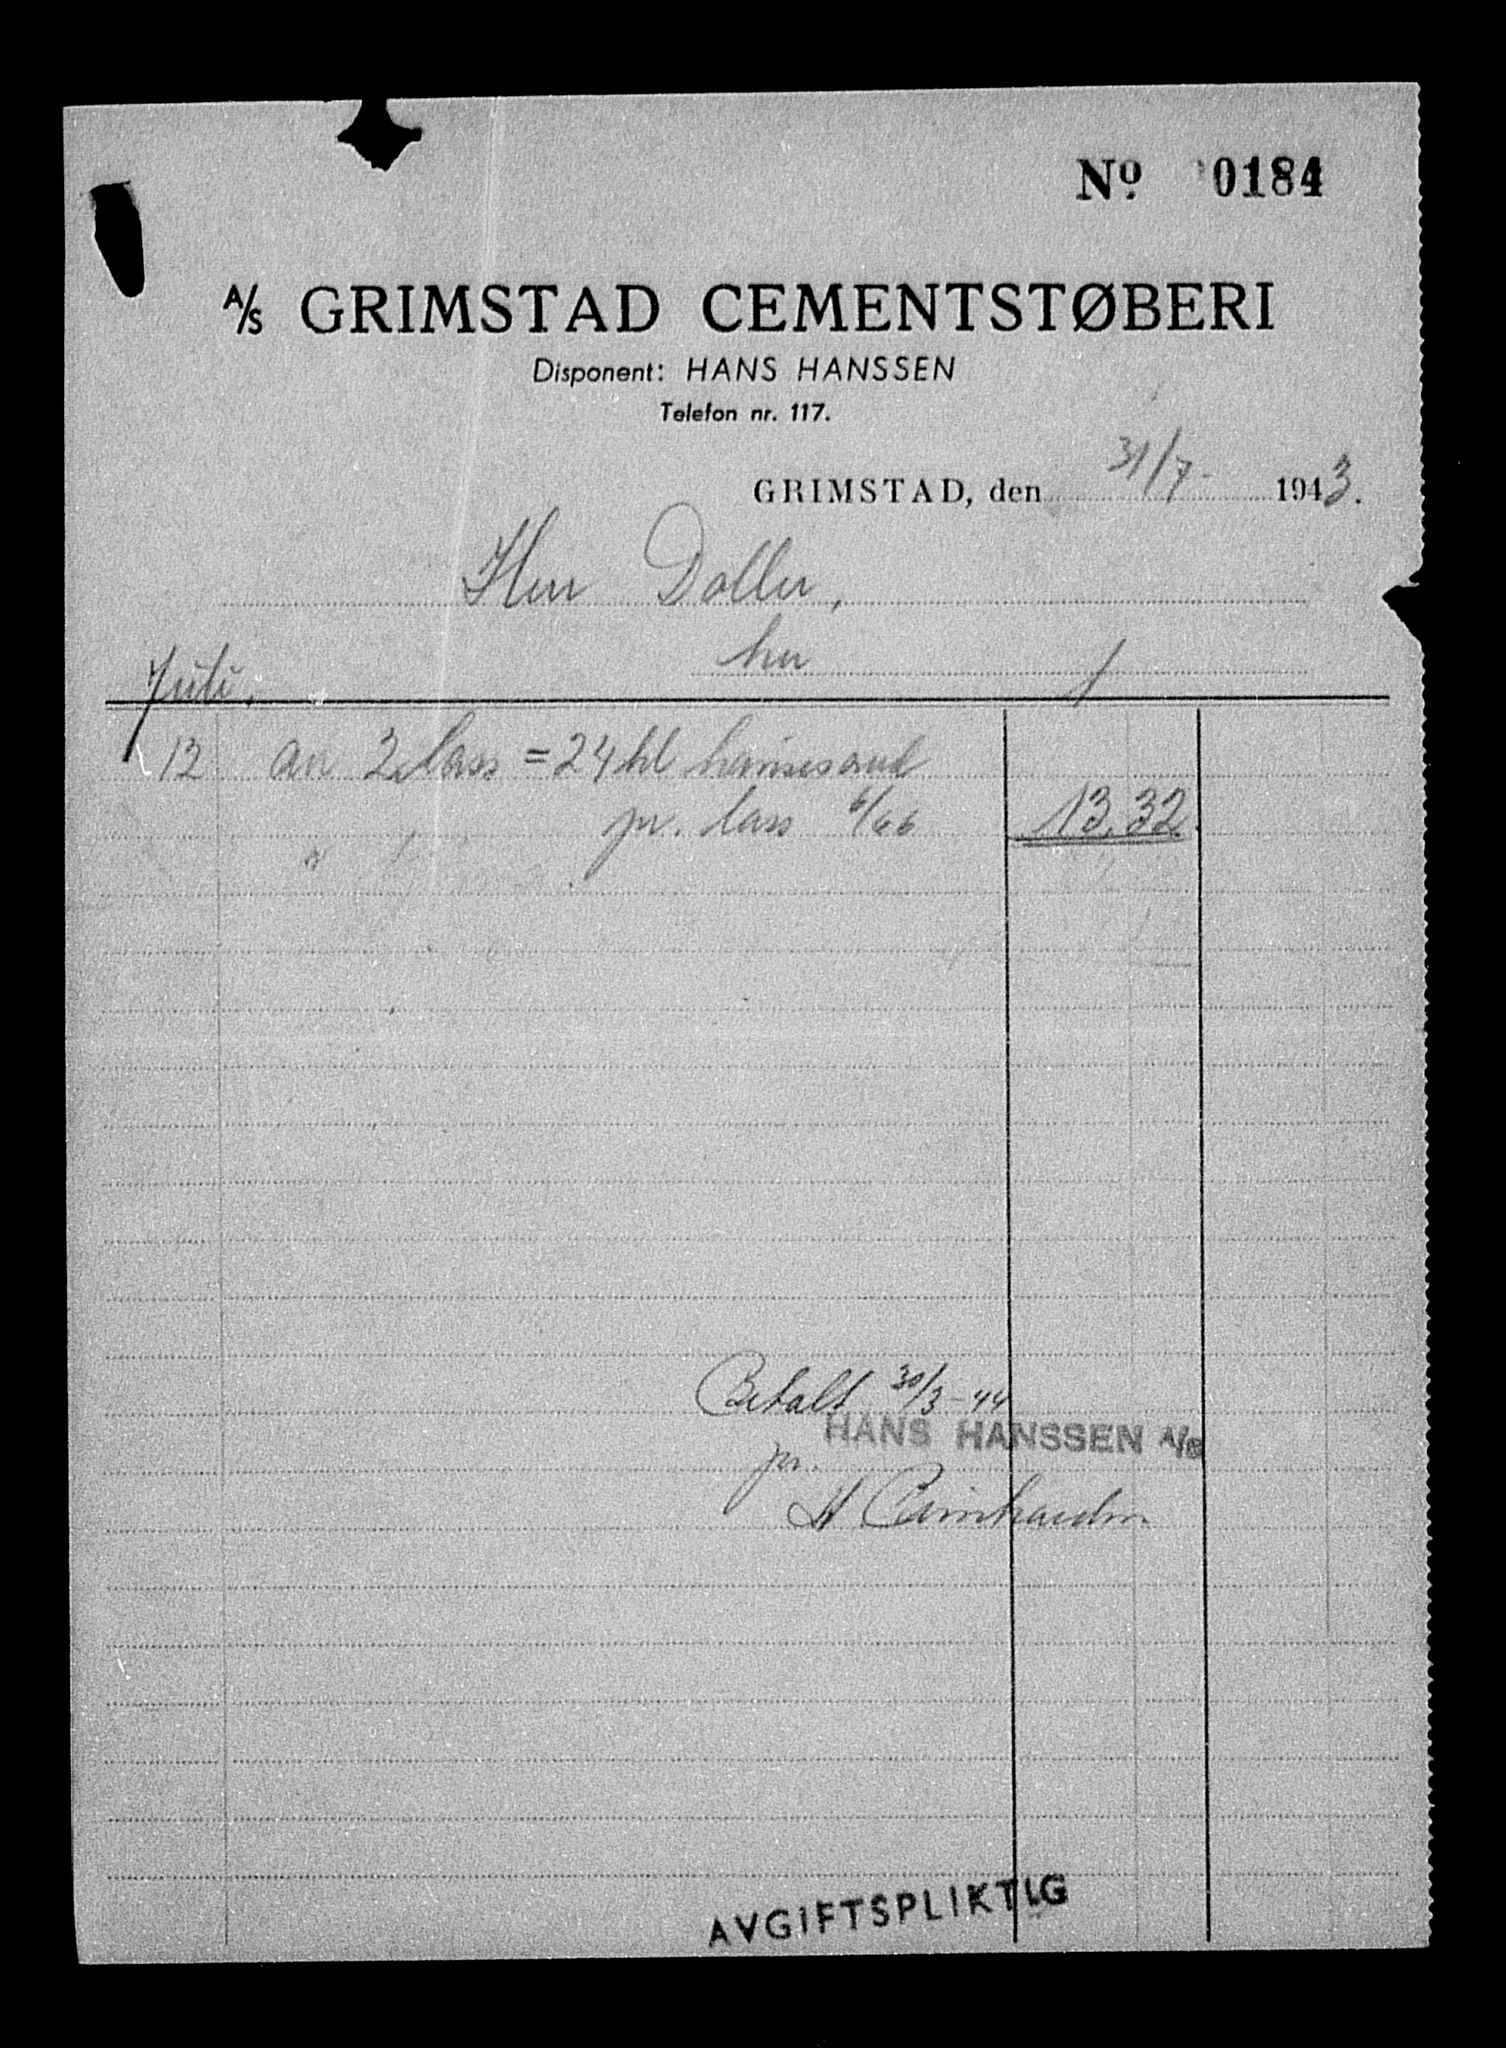 Nº 0184
A/S GRIMSTAD CEMENTSTØBERI
Disponent: HANS HANSSEN
Telefon nr. 117.
GRIMSTAD, den 31/7- 1943.
Herr Doller,
her
Juli.
12 an 2 lass = 24 hl
pr. lass 6/66 13,32
"
Betalt 30/3-44
HANS HANSSEN A/S
pr.
H
AVGIFTSPLIKTIG